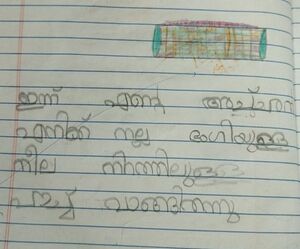 ഇന്ന് എൻ്റെ അച്ഛൻ
എനിക്ക് നല്ല ഭംഗിയുള്ള
നീല നിറത്തിലുള്ള
വാങ്ങിതന്നു